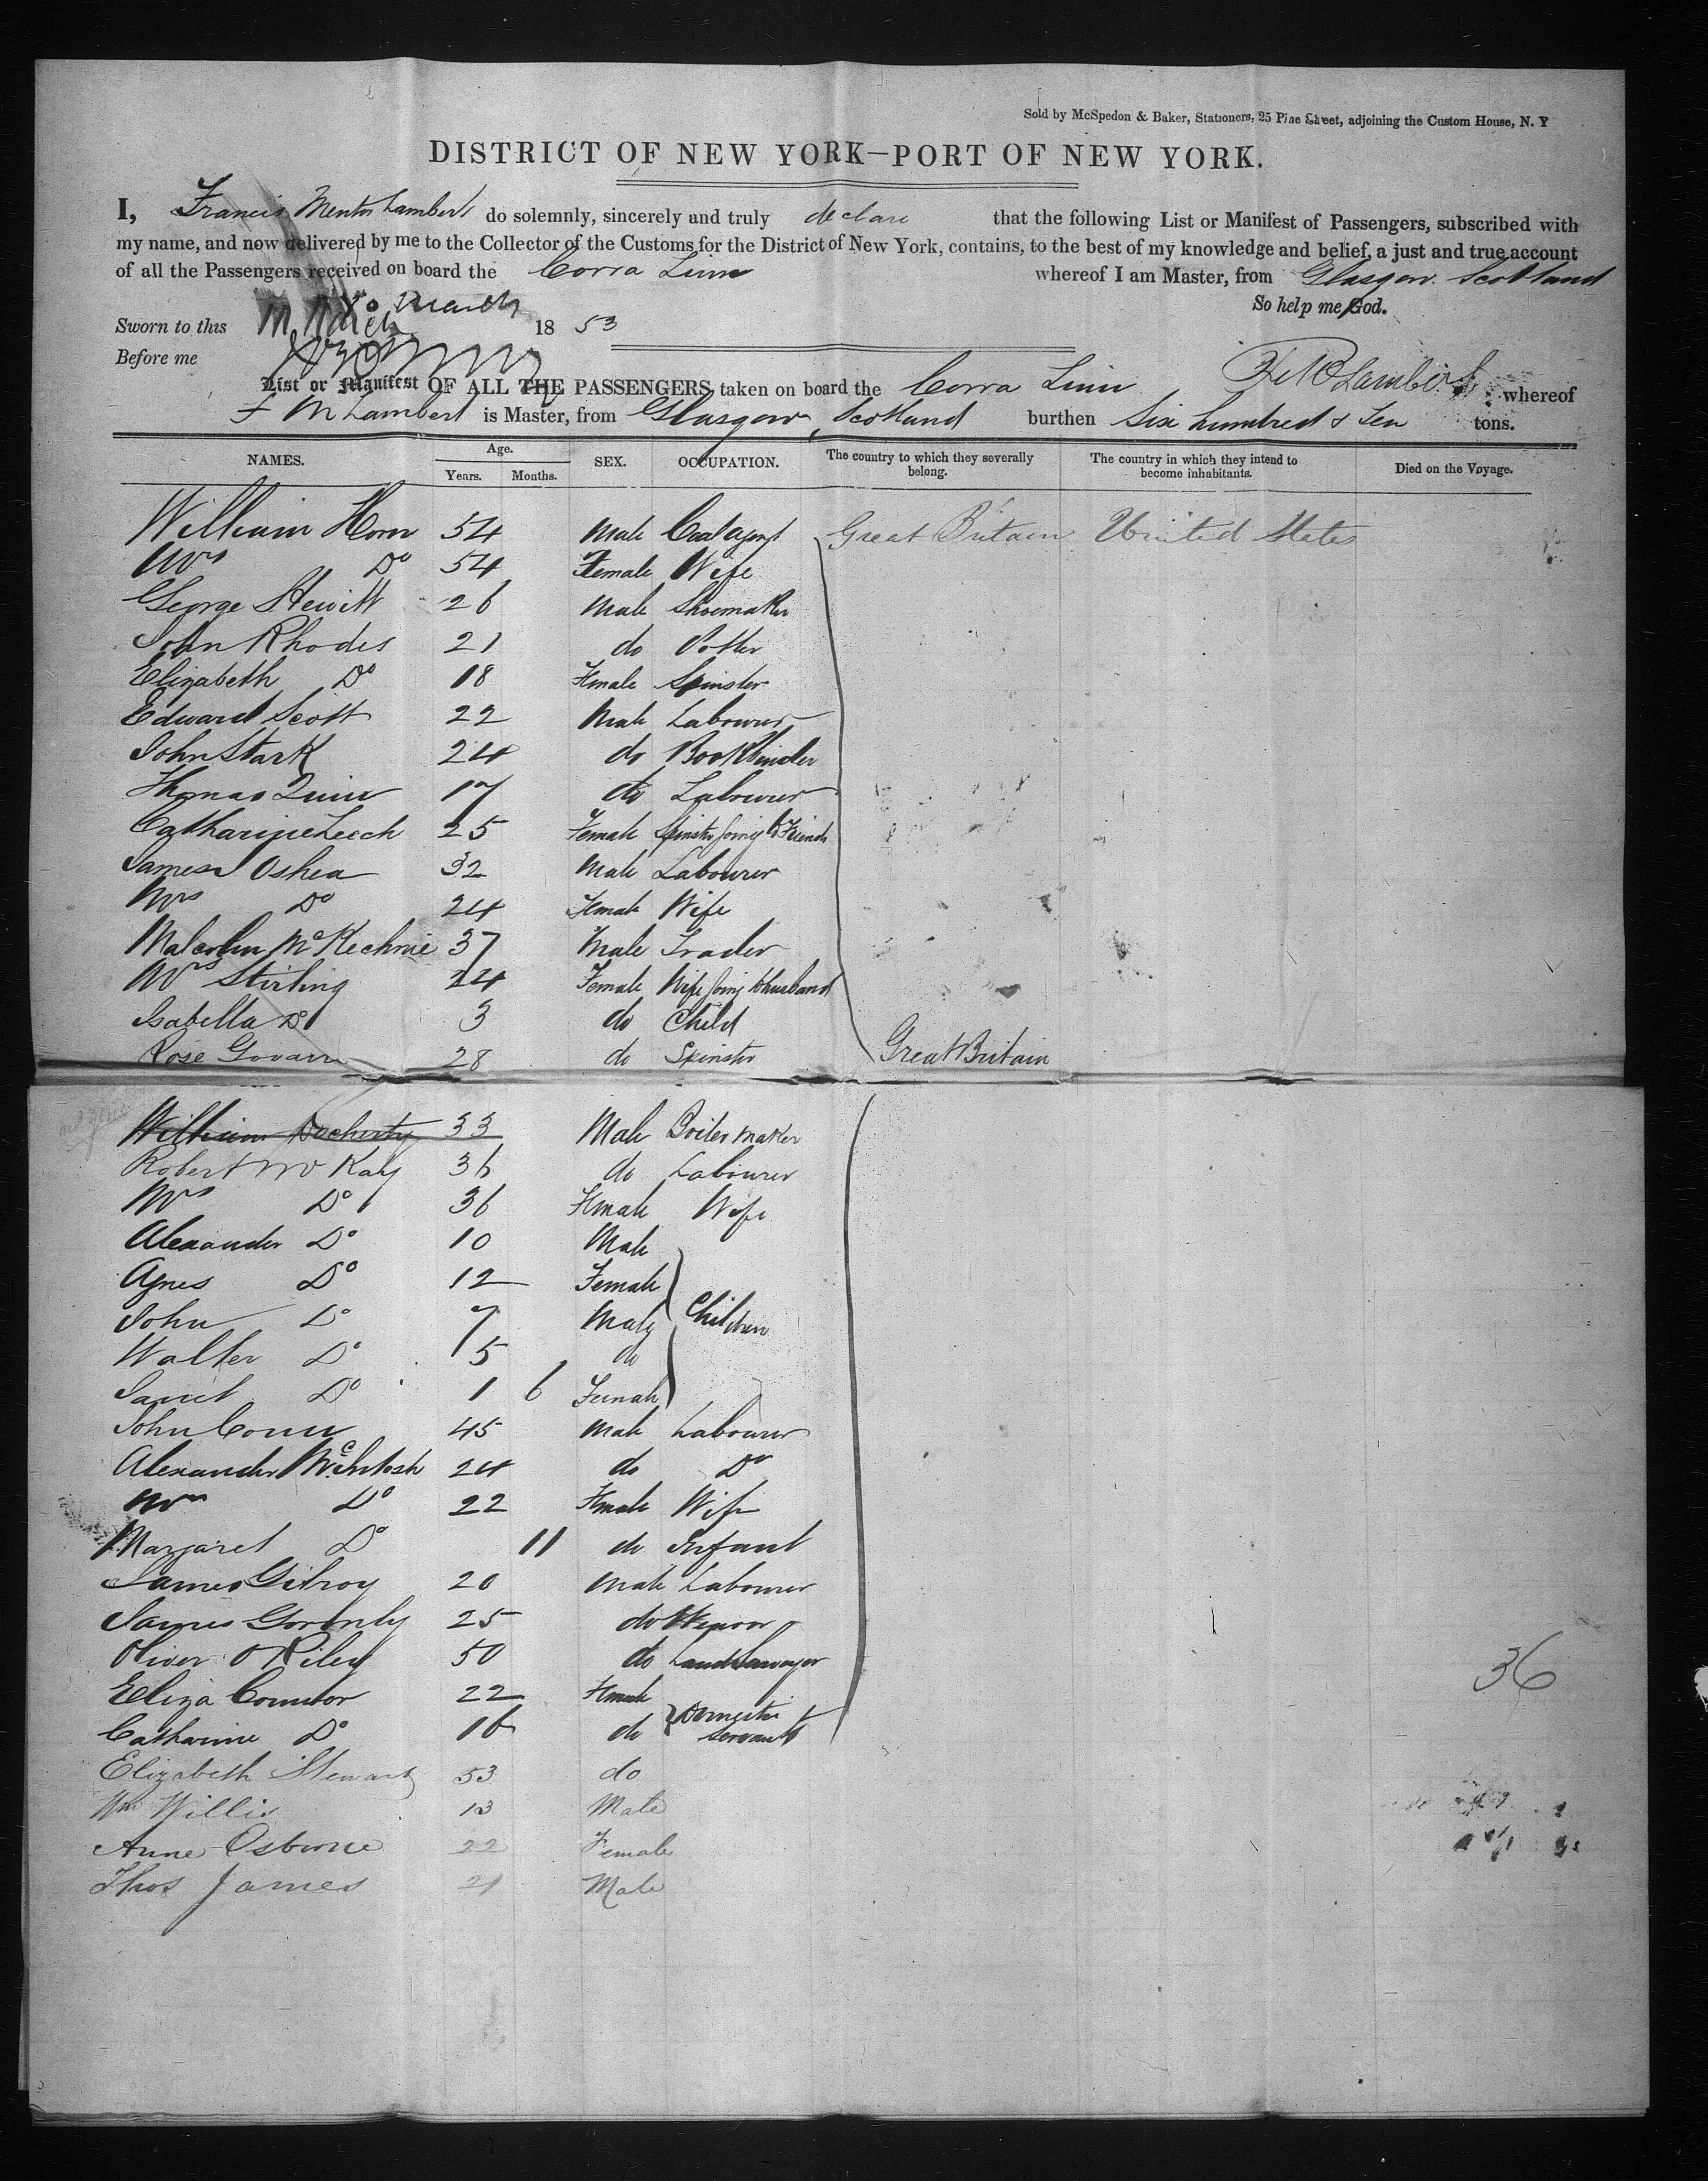 Sold by McSpedon & Baker, Stationers, 25 Pine Street, adjoining the Custom House, N. Y
DISTRICT OF NEW YORK—PORT OF NEW YORK.
I, Francis Mentor Lambert do solemnly, sincerely and truly declare that the following List or Manifest of Passengers, subscribed with
my name, and now delivered by me to the Collector of the Customs for the District of New York, contains, to the best of my knowledge and belief, a just and true account
of all the Passengers received on board the Corra Linn whereof I am Master, from Glasgow Scotland
So help me God.
Sworn to this March 18 53
Before me
List or Manifest OF ALL THE PASSENGERS taken on board the Corra Linn whereof
F M Lambert is Master, from Glasgow, Scotland burthen Six hundred & Ten tons.
NAMES. Age. Years. Months. SEX. OCCUPATION. The country to which they severally belong. The country in which they intend to become inhabitants. Died on the Voyage.
William Horn 54 Male Coal Agent Great Britain United States
Mrs Do 54 Female Wife
George Hewitt 26 Male Shoemaker
John Rhodes 21 do Potter
Elizabeth Do 18 Female Spinster
Edward Scott 22 Male Labourer
John Stark 24 do Bookbinder
Thomas Quin 17 do Labourer
Catharine Leech 25 Female Spinster going to Friends
James Oshea 32 Male Labourer
Mrs Do 24 Female Wife
Malcolm McKechnie 37 Male Trader
Mrs Stirling 24 Female Wife going to husband
Isabella Do 3 do Child
Rose Govarn 28 do Spinster Great Britain
William Docherty 33 Male Boiler maker
Robert McKay 36 do Labourer
Mrs Do 36 Female Wife
Alexander Do 10 Male
Agnes Do 12 Female
John Do 7 Male Children
Walter Do 5 do
Janet Do 1 6 Female
John Conn 45 Male Labourer
Alexander McIntosh 24 do Do
Mrs Do 22 Female Wife
Margaret Do 11 do Infant
James Gilroy 20 Male Labourer
James Gormly 25 do
Oliver O Riley 50 do Land Surveyor 36
Eliza Connor 22 Female
Catharine Do 16 do Domestic Servants
Elizabeth Stewart 53 do
Wm Willis 13 Male
Anne Osborne 22 Female
Thos James 21 Male